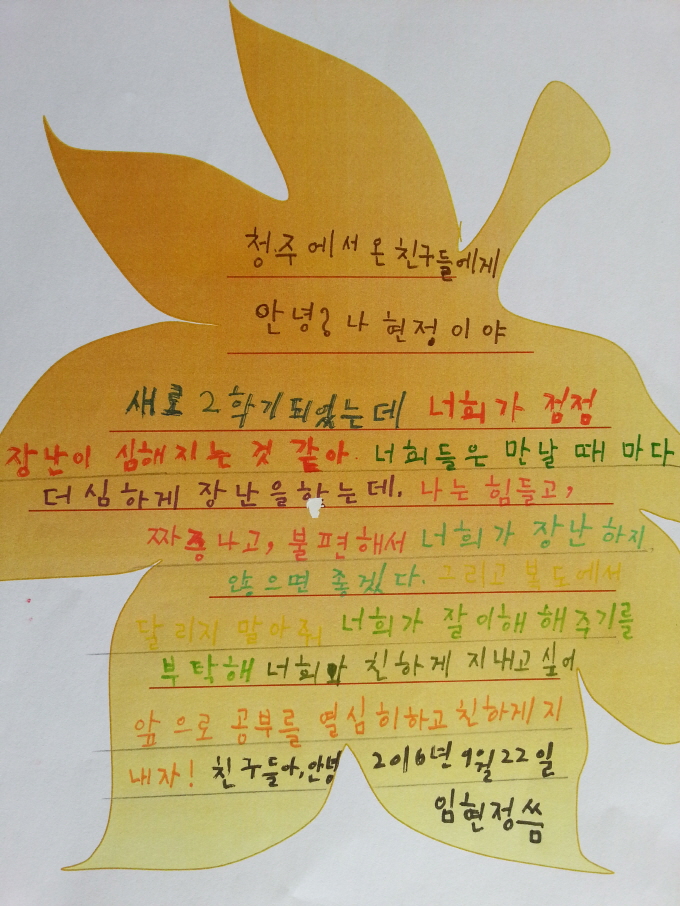 청주에서 온 친구들에게
안녕? 나 현정이야
새로 2학기되었는데 너희가 점점
장난이 심해지는 것 같아. 너희들은 만날 때 마다
더 심하게 장난을 하는데. 나는 힘들고,
짜증나고, 불편해서 너희가 장난 하지
않으면 좋겠다. 그리고 복도에서
달리지 말아줘 너희가 잘 이해 해주기를
부탁해 너희와 친하게 지내고 싶어
앞으로 공부를 열심히하고 친하게 지
내자! 친구들아, 안녕 2016년 9월 22일
임현정씀